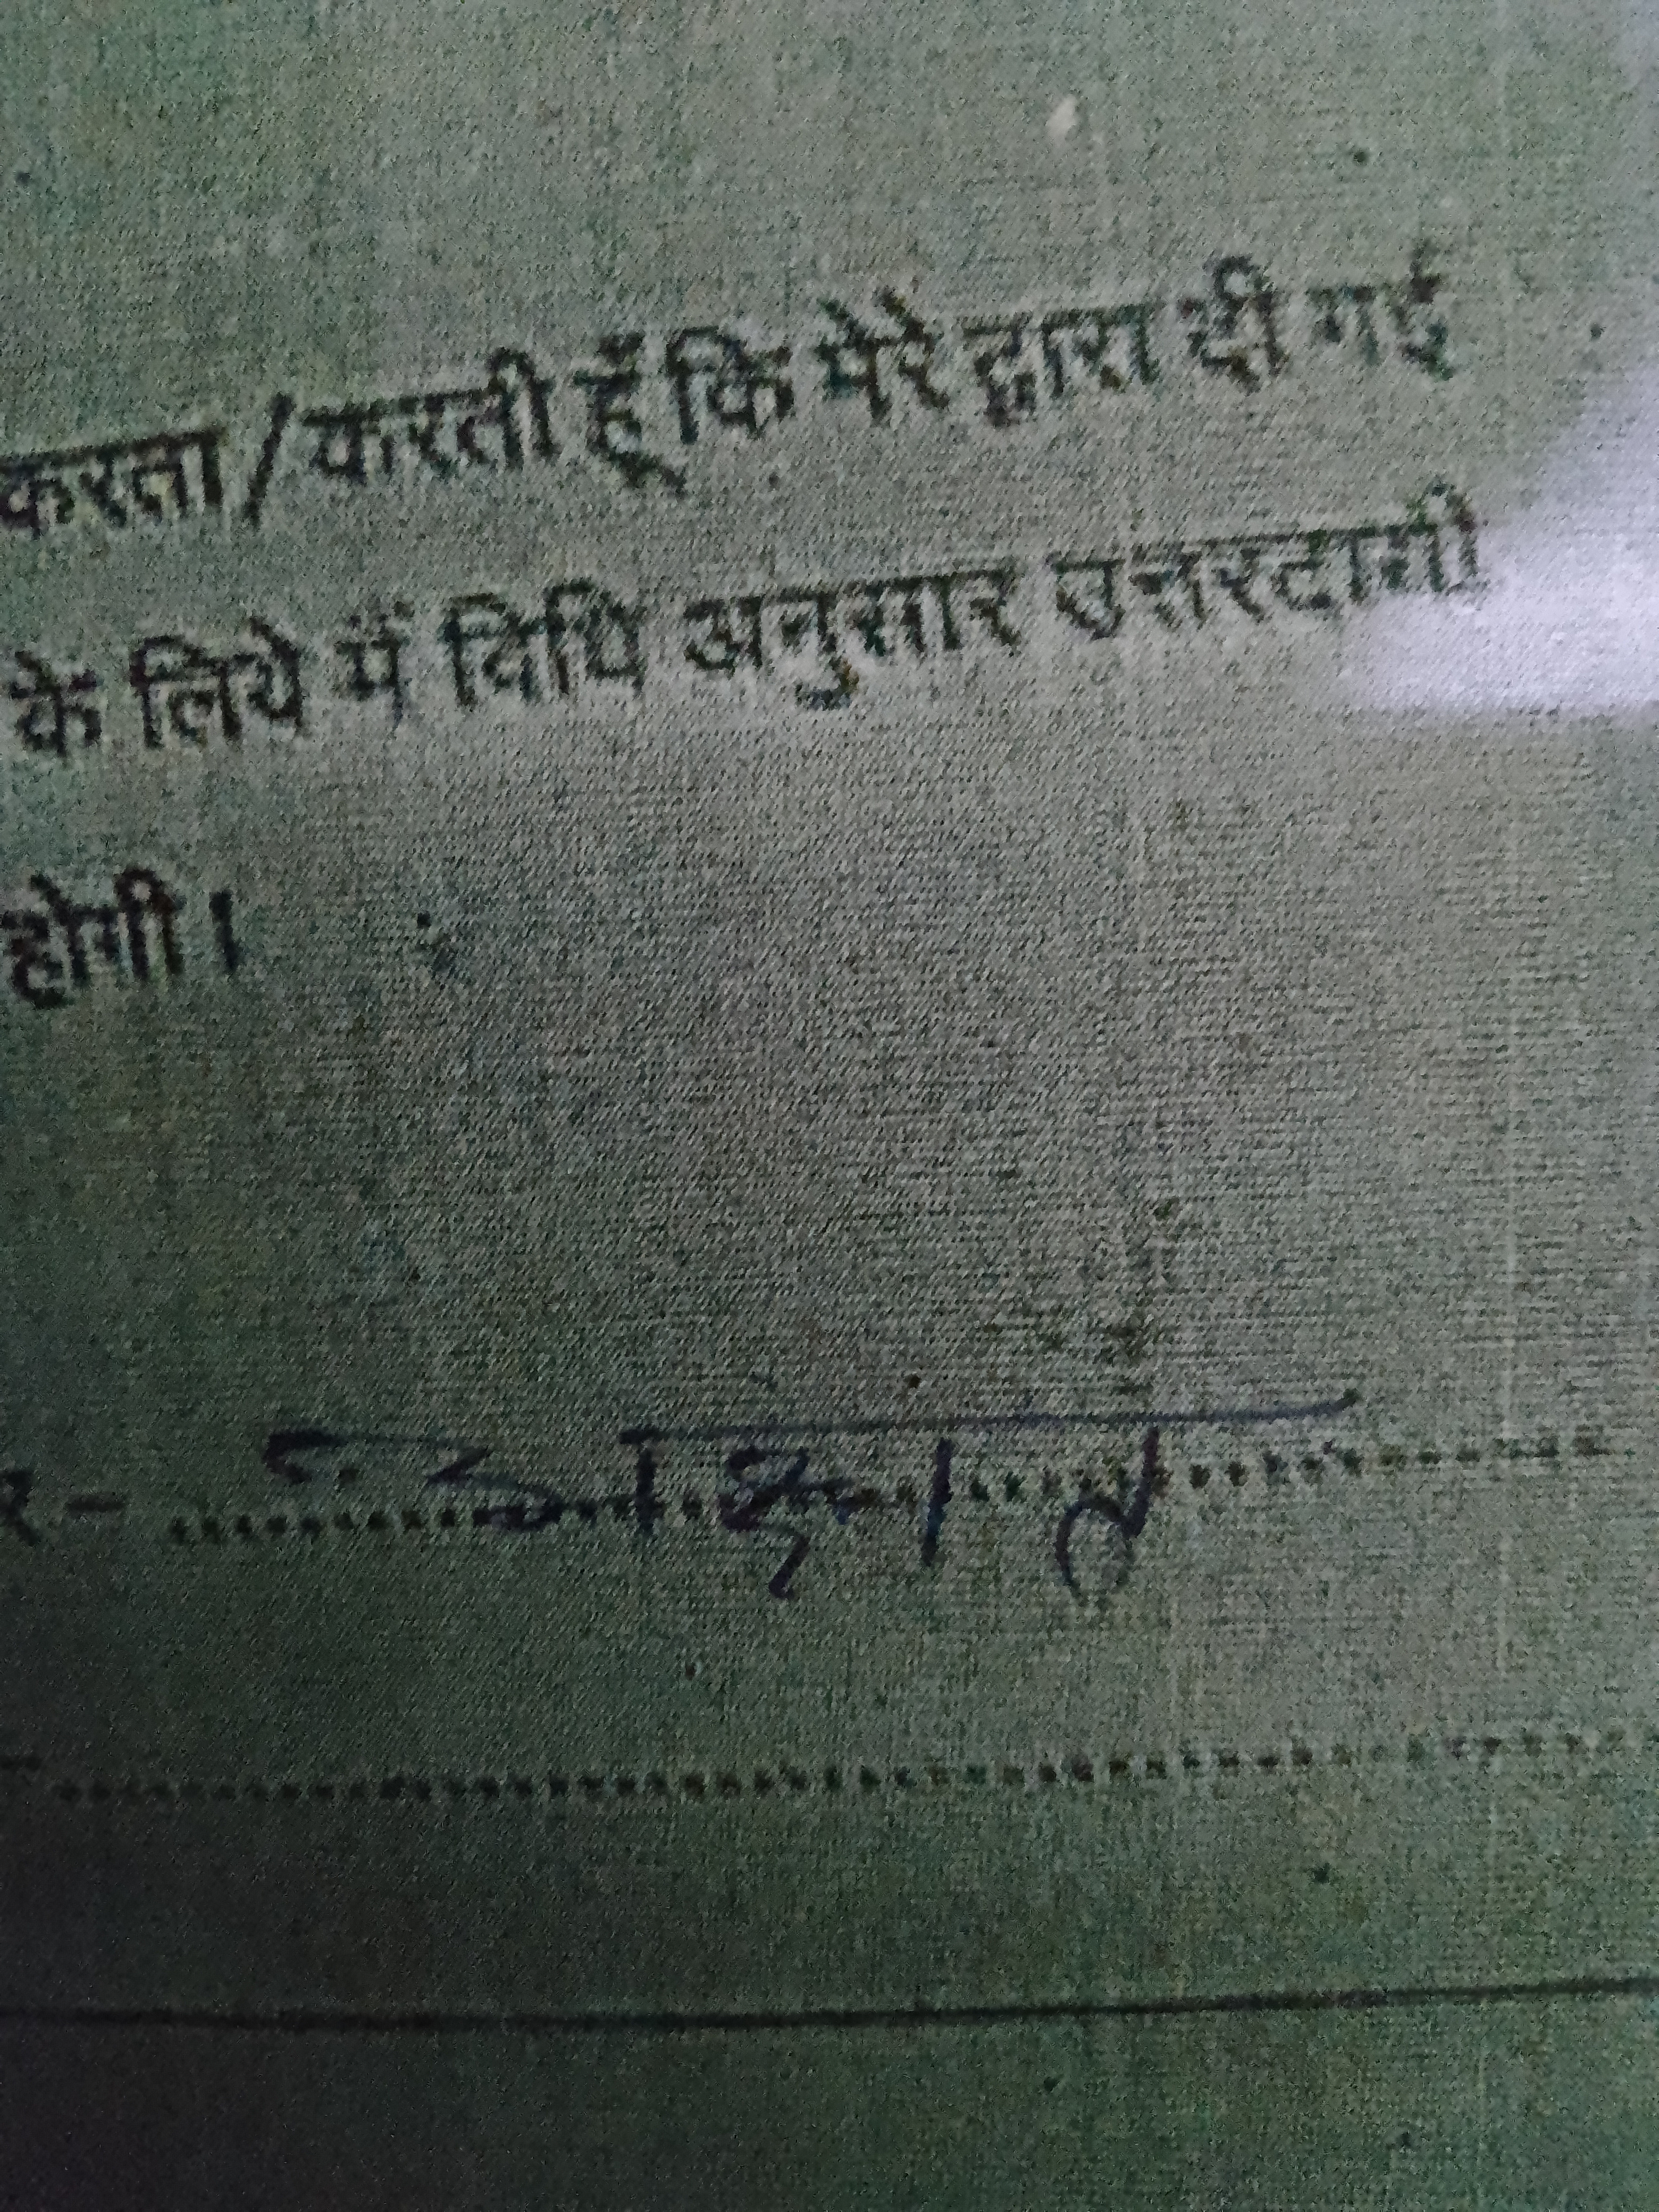 करता/करती हूँ कि मेरे द्वारा दी गई
के लिये मैं विधि अनुसार उत्तरदायी
होगी।
र-